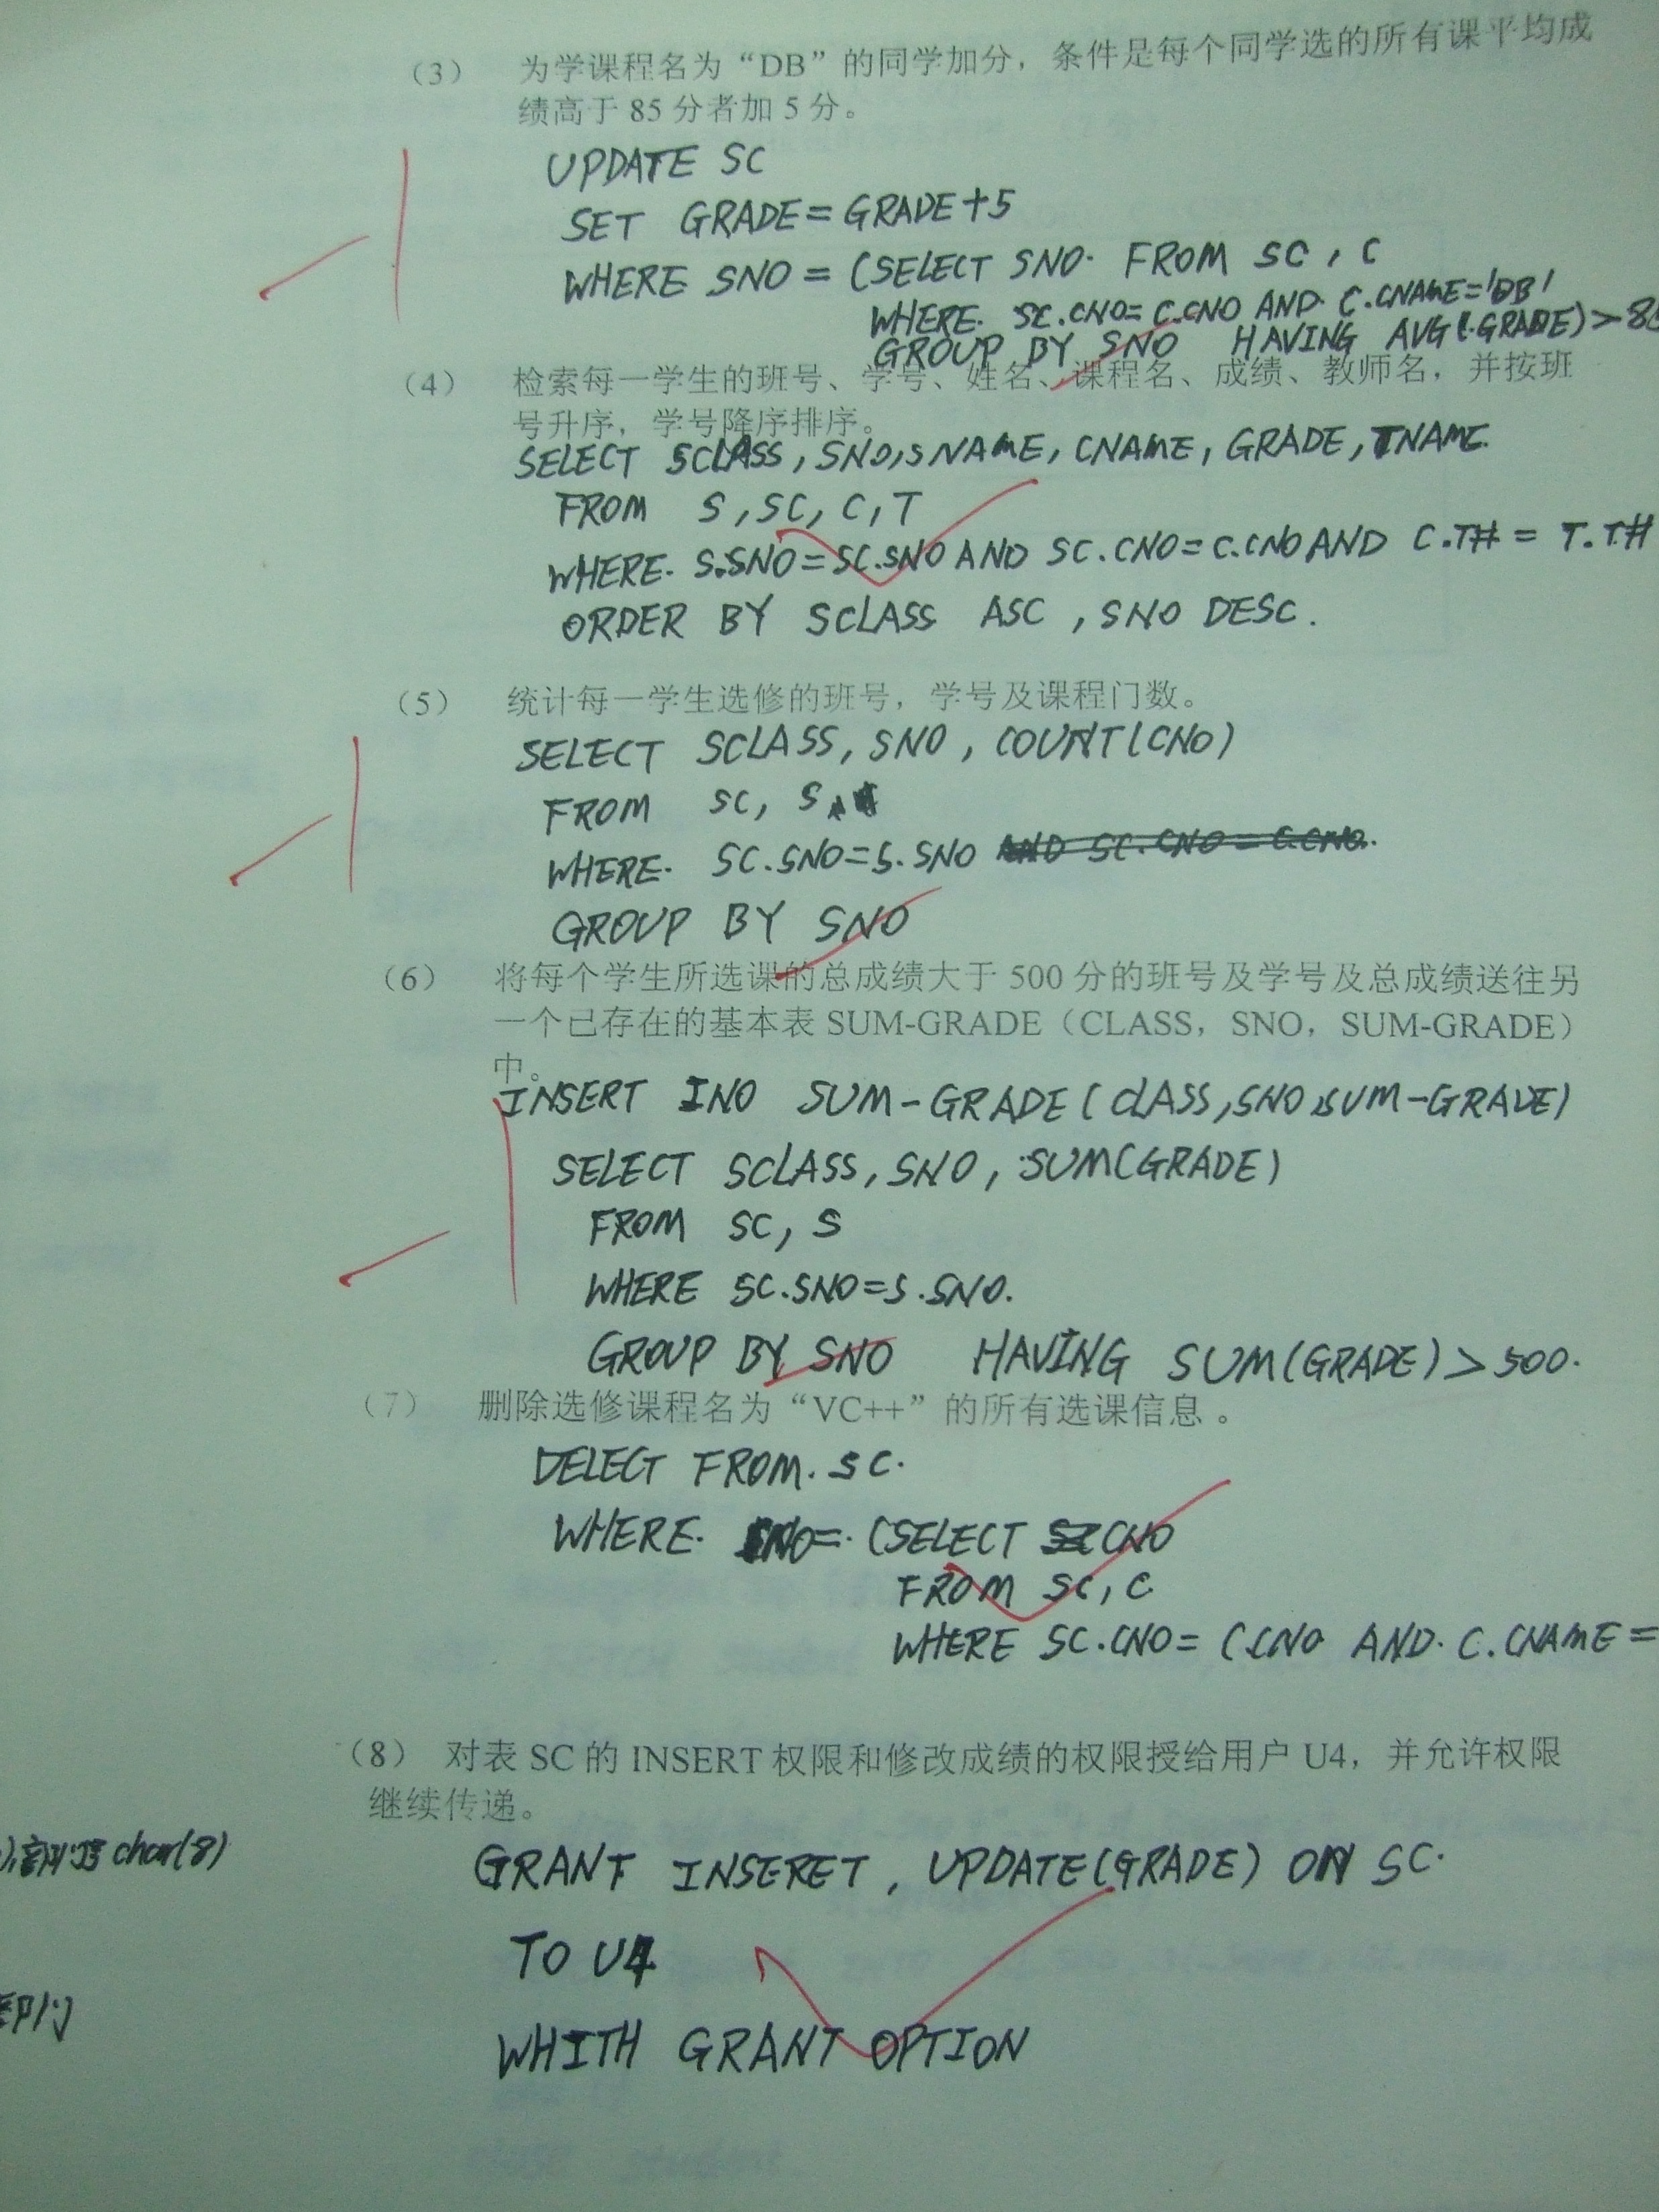 （3） 为学课程名为“DB”的同学加分，条件是每个同学选的所有课平均成
绩高于 85 分者加 5 分。
UPDATE SC
SET GRADE=GRADE+5
WHERE SNO = (SELECT SNO. FROM SC , C
WHERE. SC.CNO= C.CNO AND. C.CNAME='DB'
GROUP BY SNO HAVING AVG(.GRADE)>8
（4） 检索每一学生的班号、学号、姓名、课程名、成绩、教师名，并按班
号升序，学号降序排序。
SELECT SCLASS, SNO,SNAME, CNAME, GRADE, TNAME.
FROM S, SC, C, T
WHERE. S.SNO=SC.SNO AND SC.CNO=C.CNO AND C.T# = T.T#
ORDER BY SCLASS ASC , SNO DESC.
（5） 统计每一学生选修的班号，学号及课程门数。
SELECT SCLASS, SNO , COUNT(CNO)
FROM SC, S
WHERE. SC.SNO=S.SNO AND SC.CNO=C.CNO.
GROUP BY SNO
（6） 将每个学生所选课的总成绩大于 500 分的班号及学号及总成绩送往另
一个已存在的基本表 SUM-GRADE（CLASS，SNO，SUM-GRADE）
中。
INSERT INO SUM-GRADE(CLASS,SNO,SUM-GRADE)
SELECT SCLASS, SNO, SUM(GRADE)
FROM SC, S
WHERE SC.SNO=S.SNO.
GROUP BY SNO HAVING SUM(GRADE)>500.
（7） 删除选修课程名为“VC++”的所有选课信息 。
DELECT FROM. SC.
WHERE. NO=. (SELECT CNO
FROM SC, C
WHERE SC.CNO= C.CNO AND. C.CNAME=
（8） 对表 SC 的 INSERT 权限和修改成绩的权限授给用户 U4，并允许权限
继续传递。
GRANT INSERET , UPDATE(GRADE) ON SC.
char(8)
TO U4
部门
WHITH GRANT OPTION